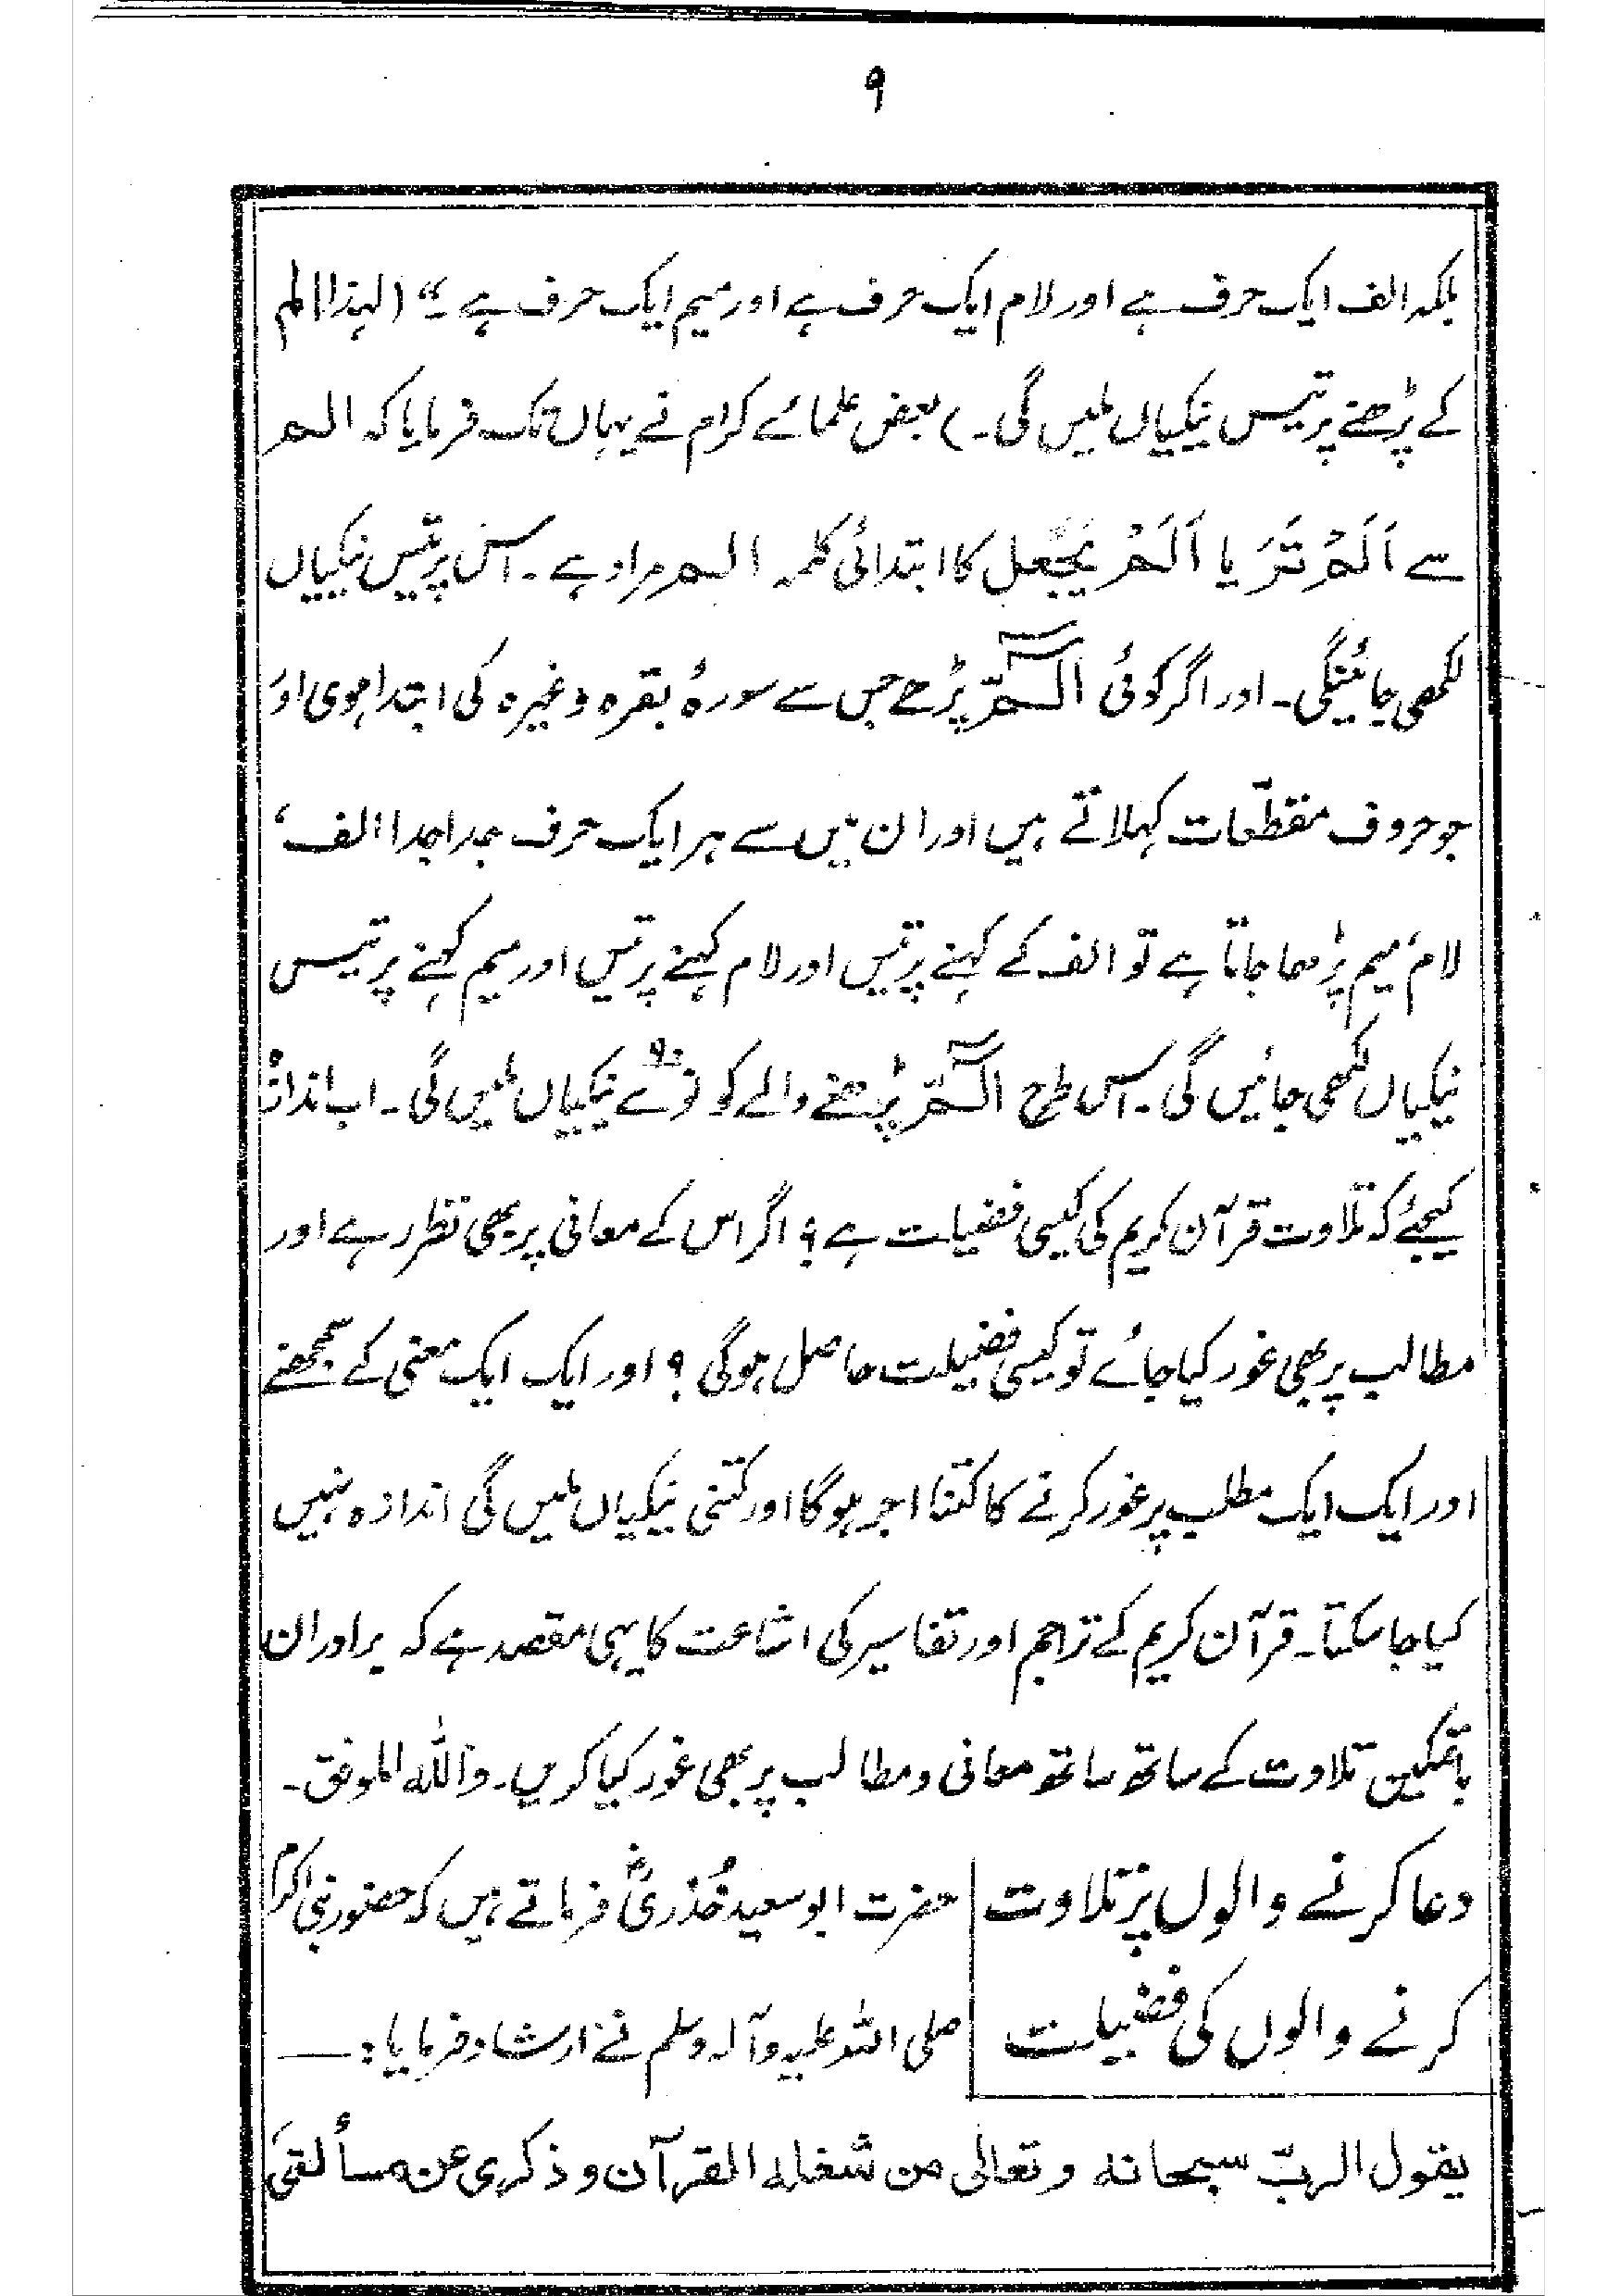 ۹
بلکہ الف ایک حرف ہے اور لام ایک حرف ہے اور میم ایک حرف ہے ۔“ (لہذا الم
کے پڑھنے پر تیس نیکیاں ملیں گی۔) بعض علمائے کرام نے یہاں تک فرمایا کہ الم
سے اَلَمْ تَرَ یا اَلَمْ نَجْعَل کا ابتدائی کلمہ الم مراد ہے ۔ اس پر تیس نیکیاں
لکھی جائینگی۔ اور اگر کوئی الٓمّٓ پڑھے جس سے سورۂ بقرہ وغیرہ کی ابتدا ہوی اور
جو حروف مقطّعات کہلاتے ہیں اور ان میں سے ہر ایک حرف جدا جدا الف،
لام، میم پڑھا جاتا ہے تو الف کے کہنے پر تیس اور لام کہنے پر تیس اور میم کہنے پر تیس
نیکیاں لکھی جائیں گی۔ اس طرح الٓمّٓ پڑھنے والے کو نوّے ۹۰ نیکیاں ملیں گی۔ اب اندازہ
کیجئے کہ تلاوت قرآن کریم کی کیسی فضیلت ہے؟ اگر اس کے معانی پر بھی نظر رہے اور
مطالب پر بھی غور کیا جائے تو کیسی فضیلت حاصل ہوگی؟ اور ایک ایک معنی کے سمجھنے
اور ایک ایک مطلب پر غور کرنے کا کتنا اجر ہوگا اور کتنی نیکیاں ملیں گی اندازہ نہیں
کیا جا سکتا۔ قرآن کریم کے تراجم اور تفاسیر کی اشاعت کا یہی مقصد ہے کہ برادران
باتمکین تلاوت کے ساتھ ساتھ معانی و مطالب پر بھی غور کیا کریں۔ واللہ الموفق۔
دعا کرنے والوں پر تلاوت
کرنے والوں کی فضیلت
حضرت ابو سعید خُدریؓ فرماتے ہیں کہ حضور نبی اکرم
صلی اللہ علیہ وآلہ وسلم نے ارشاد فرمایا: —
یقول الربّ سبحانہ وتعالی من شغلہ القرآن و ذکری عن مسألتی